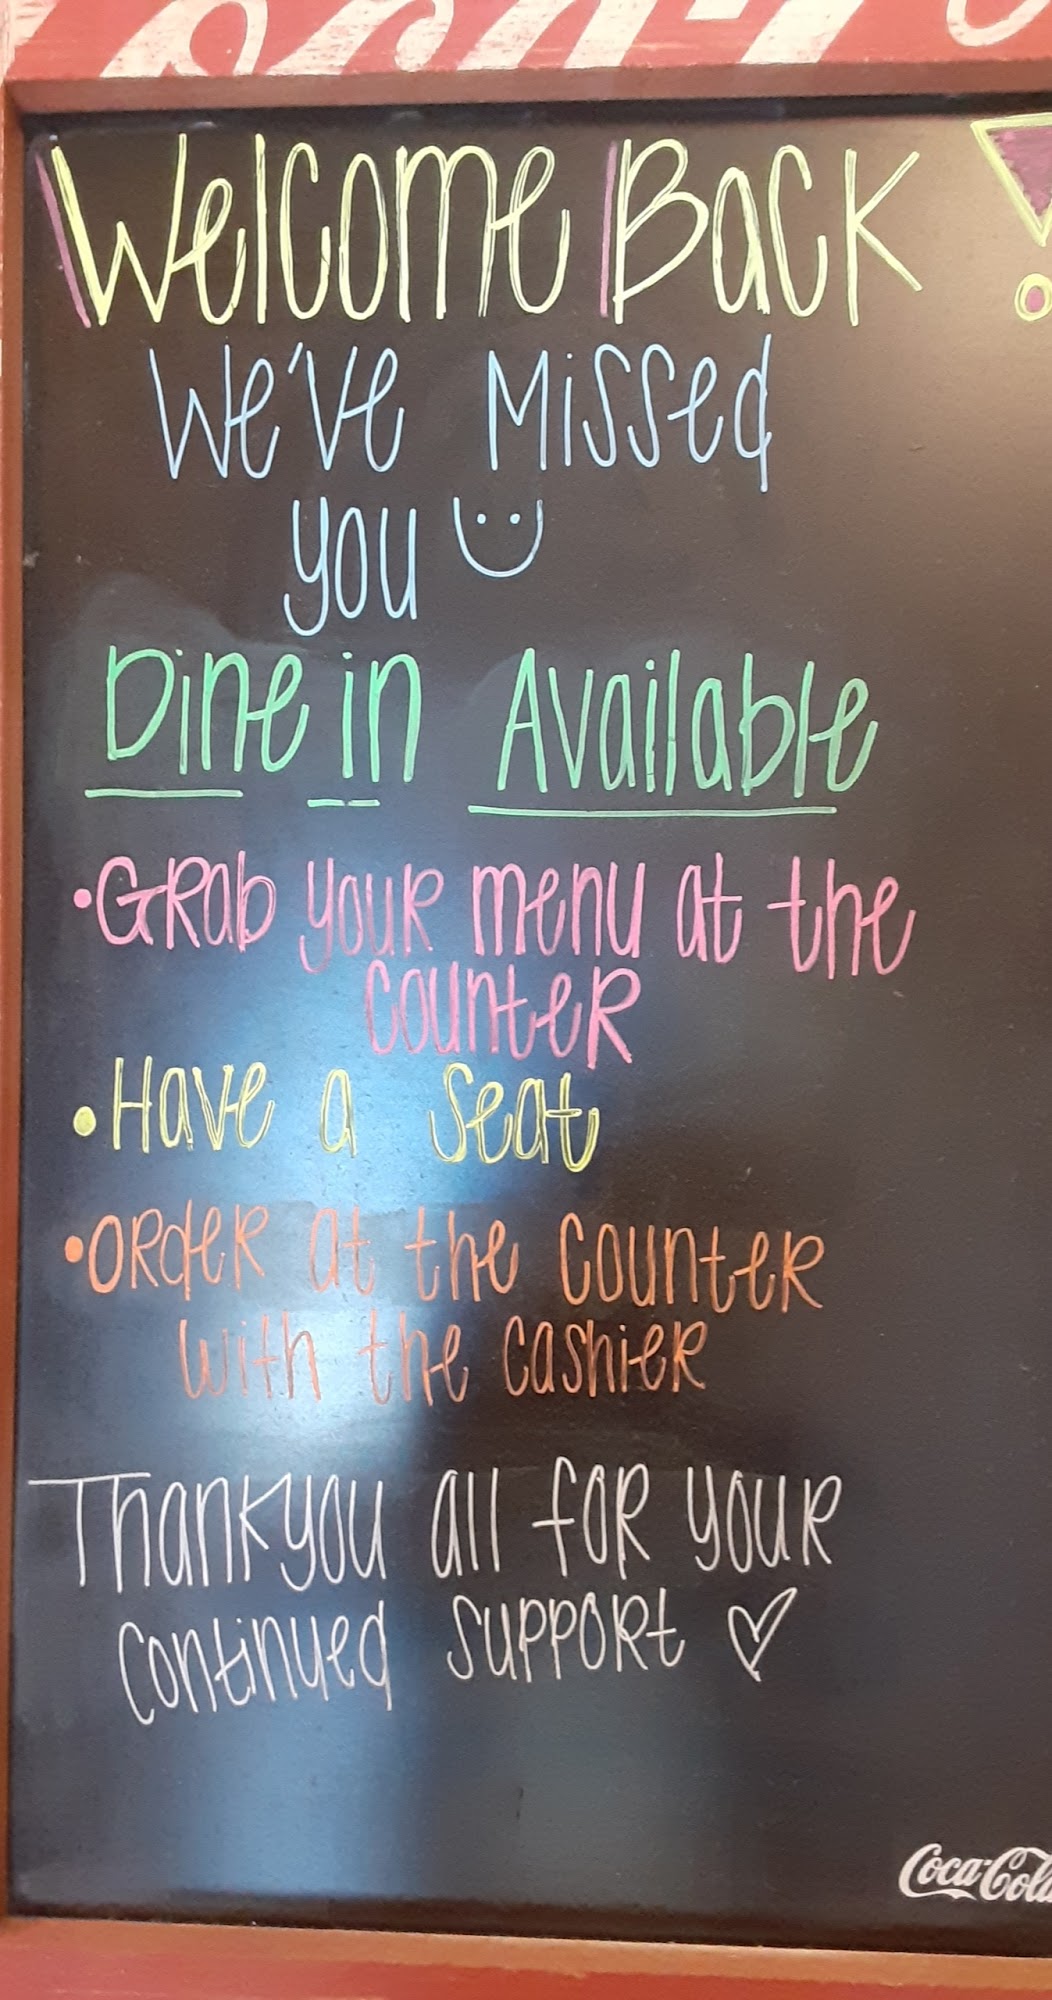 Welcome Back!
We've Missed
you
Dine in Available
•Grab your menu at the
counter
•Have a Seat
•Order at the counter
with the cashier
Thankyou all for your
continued support
Coca-Cola